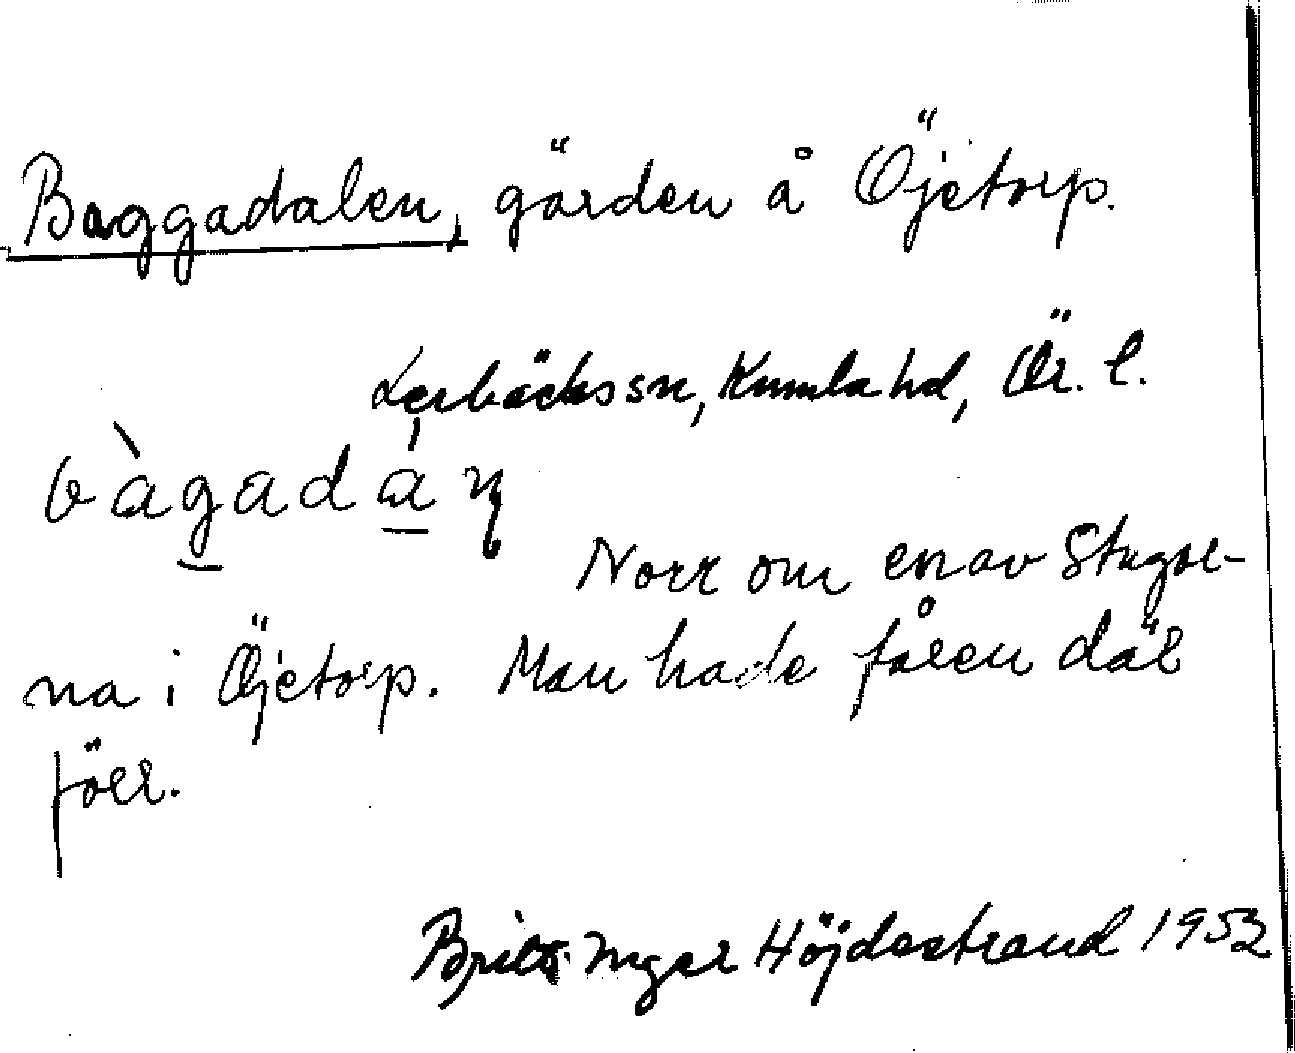 Baggadalen, gärden å Öjetorp.
Lerbäcks sn, Kumla hd, Ör. l.
bàgadán
Norr om en av Stugor-
na i Öjetorp. Man hade fåren där
förr.
Britt-Inger Höjdestrand 1953